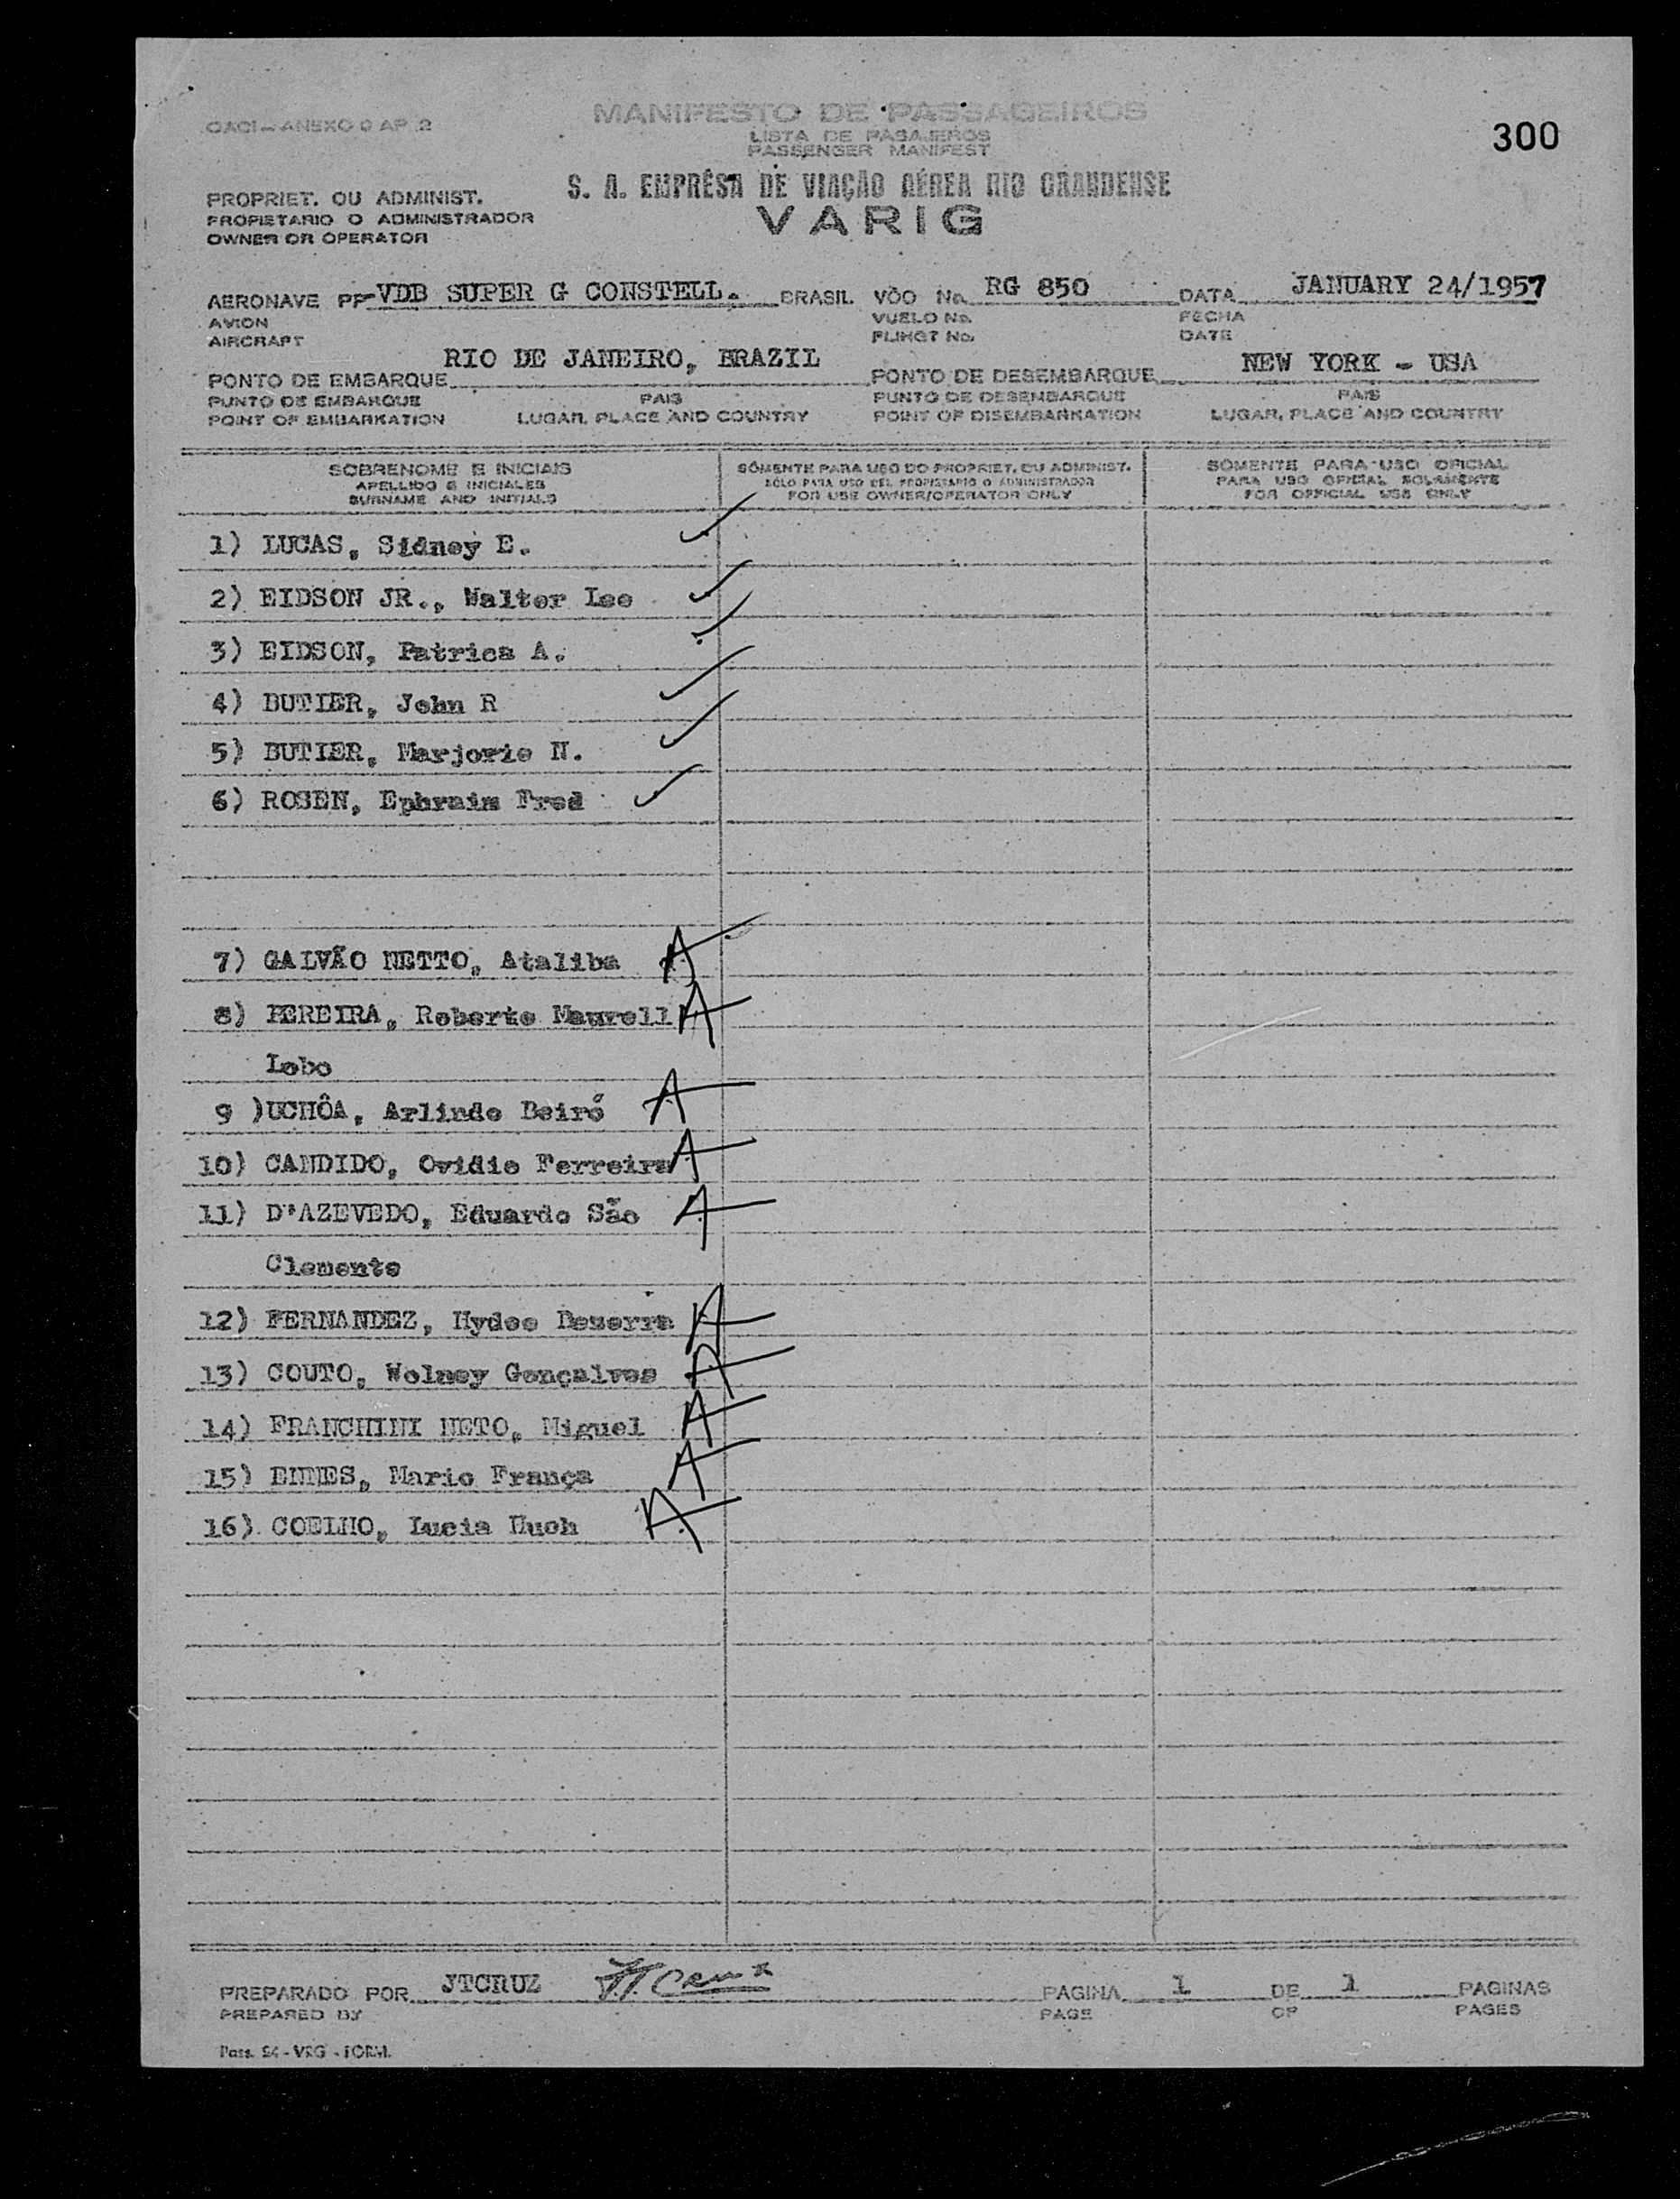 OACI – ANEXO 9 AP 2
MANIFESTO DE PASSAGEIROS
LISTA DE PASAJEROS
PASSENGER MANIFEST
300
PROPRIET. OU ADMINIST.
PROPIETARIO O ADMINISTRADOR
OWNER OR OPERATOR
S. A. EMPRÊSA DE VIAÇÃO AÉREA RIO GRANDENSE
VARIG
AERONAVE PP-VDB SUPER G CONSTELL. BRASIL VÔO No. RG 850 DATA JANUARY 24/1957
AVION VUELO No. FECHA
AIRCRAFT FLIHGT No. DATE
PONTO DE EMBARQUE RIO DE JANEIRO, BRAZIL PONTO DE DESEMBARQUE NEW YORK - USA
PUNTO DE EMBARQUE PAIS PUNTO DE DESEMBARQUE PAIS
POINT OF EMBARKATION LUGAR, PLACE AND COUNTRY POINT OF DISEMBARKATION LUGAR, PLACE AND COUNTRY
SOBRENOME E INICIAIS
APELLIDO E INICIALES
SURNAME AND INITIALS
SÓMENTE PARA USO DO PROPRIET. OU ADMINIST.
SÓLO PARA USO DEL PROPIETARIO O ADMINISTRADOR
FOR USE OWNER/OPERATOR ONLY
SÓMENTE PARA USO OFICIAL
PARA USO OFICIAL SOLAMENTE
FOR OFFICIAL USE ONLY
1) LUCAS, Sidney E.
2) EIDSON JR., Walter Lee
3) EIDSON, Patrica A.
4) BUTIER, John R
5) BUTIER, Marjorie N.
6) ROSEN, Ephraim Fred
7) GALVÃO NETTO, Ataliba A
8) PEREIRA, Roberto Maurell A
Lobo
9 )UCHÔA, Arlindo Beiró A
10) CANDIDO, Ovidio Ferreira A
11) D'AZEVEDO, Eduardo São A
Clemente
12) FERNANDEZ, Hydee Bezerra A
13) COUTO, Wolney Gonçalves A
14) FRANCHINI NETO, Miguel A
15) ENNES, Mario França A
16) COELHO, Lucia Huch A
PREPARADO POR JTCRUZ J.T. Cruz PAGINA 1 DE 1 PAGINAS
PREPARED BY PAGE OF PAGES
Pass. 24 - VRG - FORM.